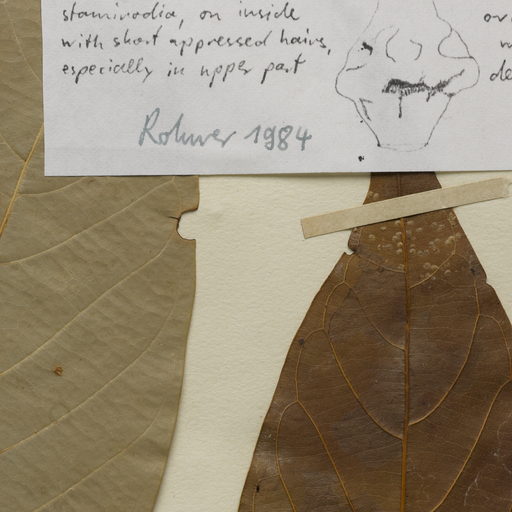 staminodia, on inside
with short appressed hairs,
especially in upper part
Rohwer 1984